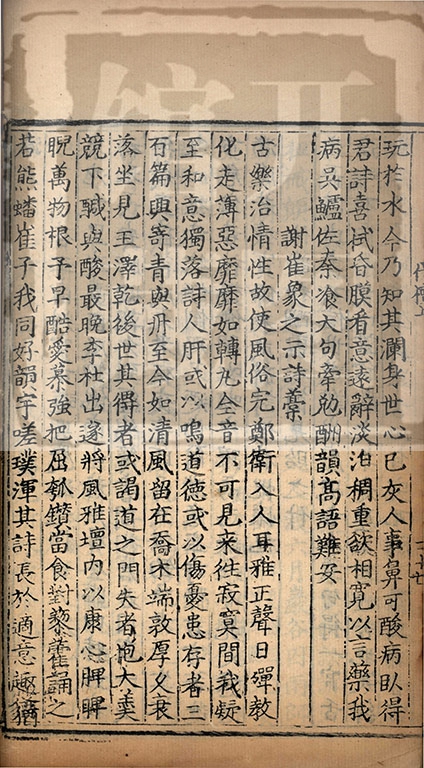 玩於水今乃知其瀾身世心已灰人事鼻可酸病臥得
君詩喜拭昏膜看意遠辭淡泊稠重欲相寬以言藥我
病吳鱸佐秦飡大句牽勉酬韻高語難安
謝崔象之示詩藁
古樂治情性故使風俗完鄭衛入人耳雅正聲日殫教
化走薄惡靡靡如轉丸全音不可見来徃寂寞間我疑
至和意獨落詩人肝或以鳴道德或以傷憂患存者三
百篇興寄青與丹至今如清風留在喬木端敦厚久衰
落坐見王澤乾後世其得者或謁道之門失者抱大羹
競下鹹與酸最晚李杜出遂將風雅壇内以康心脾睥
睨萬物根予早酷愛慕強把屈瓠鑽當食對藜藿誦之
若熊蟠崔子我同好韻宇嗟璞渾其詩長於適意趣猶